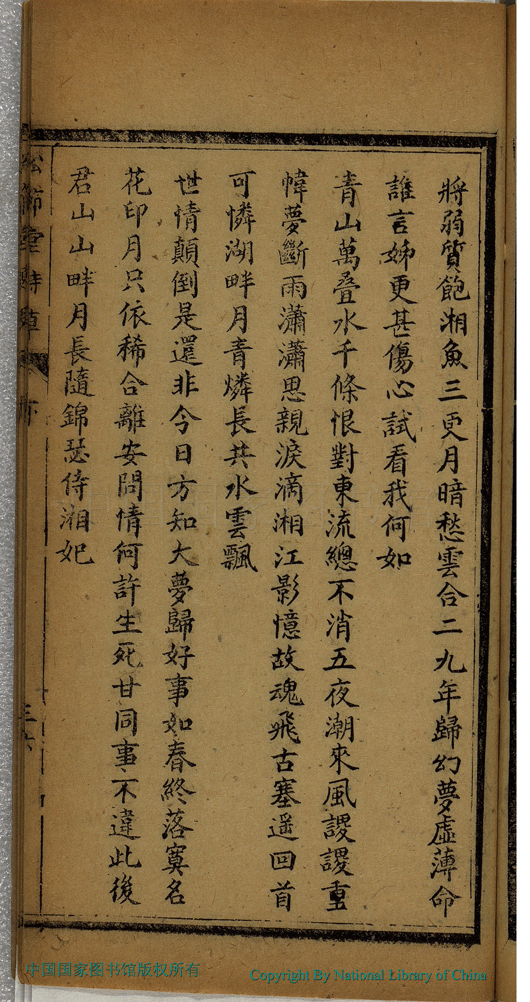 將弱質飽湘魚三更月暗愁雲合二九年歸幻夢虛薄命
誰言姊更甚傷心試看我何如
青山萬疊水千條恨對東流總不消五夜潮來風謖謖重
幃夢斷雨瀟瀟思親淚滴湘江影憶故魂飛古塞遥回首
可憐湖畔月青燐長共水雲飄
世情顛倒是還非今日方知大夢歸好事如春終落寞名
花印月只依稀合離安問情何許生死甘同事不違此後
君山山畔月長隨錦瑟侍湘妃
節堂詩草
中国国家图书馆版权所有
Copyright By National Library of China